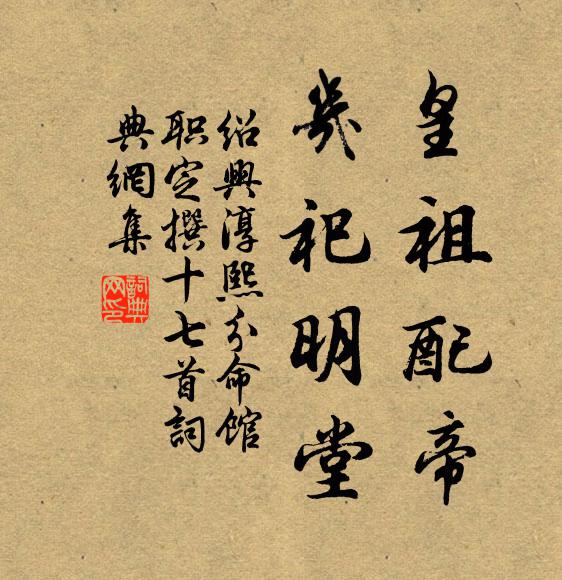 皇祖配帝
歲祀明堂
紹興淳熙分命館
职定撰十七首詞
典網集
詞典網印